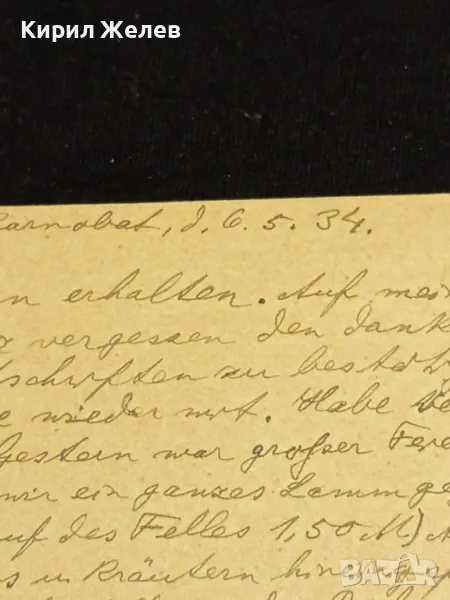 Кирил Желев
Karnobat, d. 6. 5. 34.
en erhalten. Auf mei
vergessen den dank
tschriften zu bestä
e wieder mit. Habe
Gestern war großer Feie
wir ein ganzes Lamm ge
uf des Felles 1,50 M)
s u. Kräutern hin
bazar